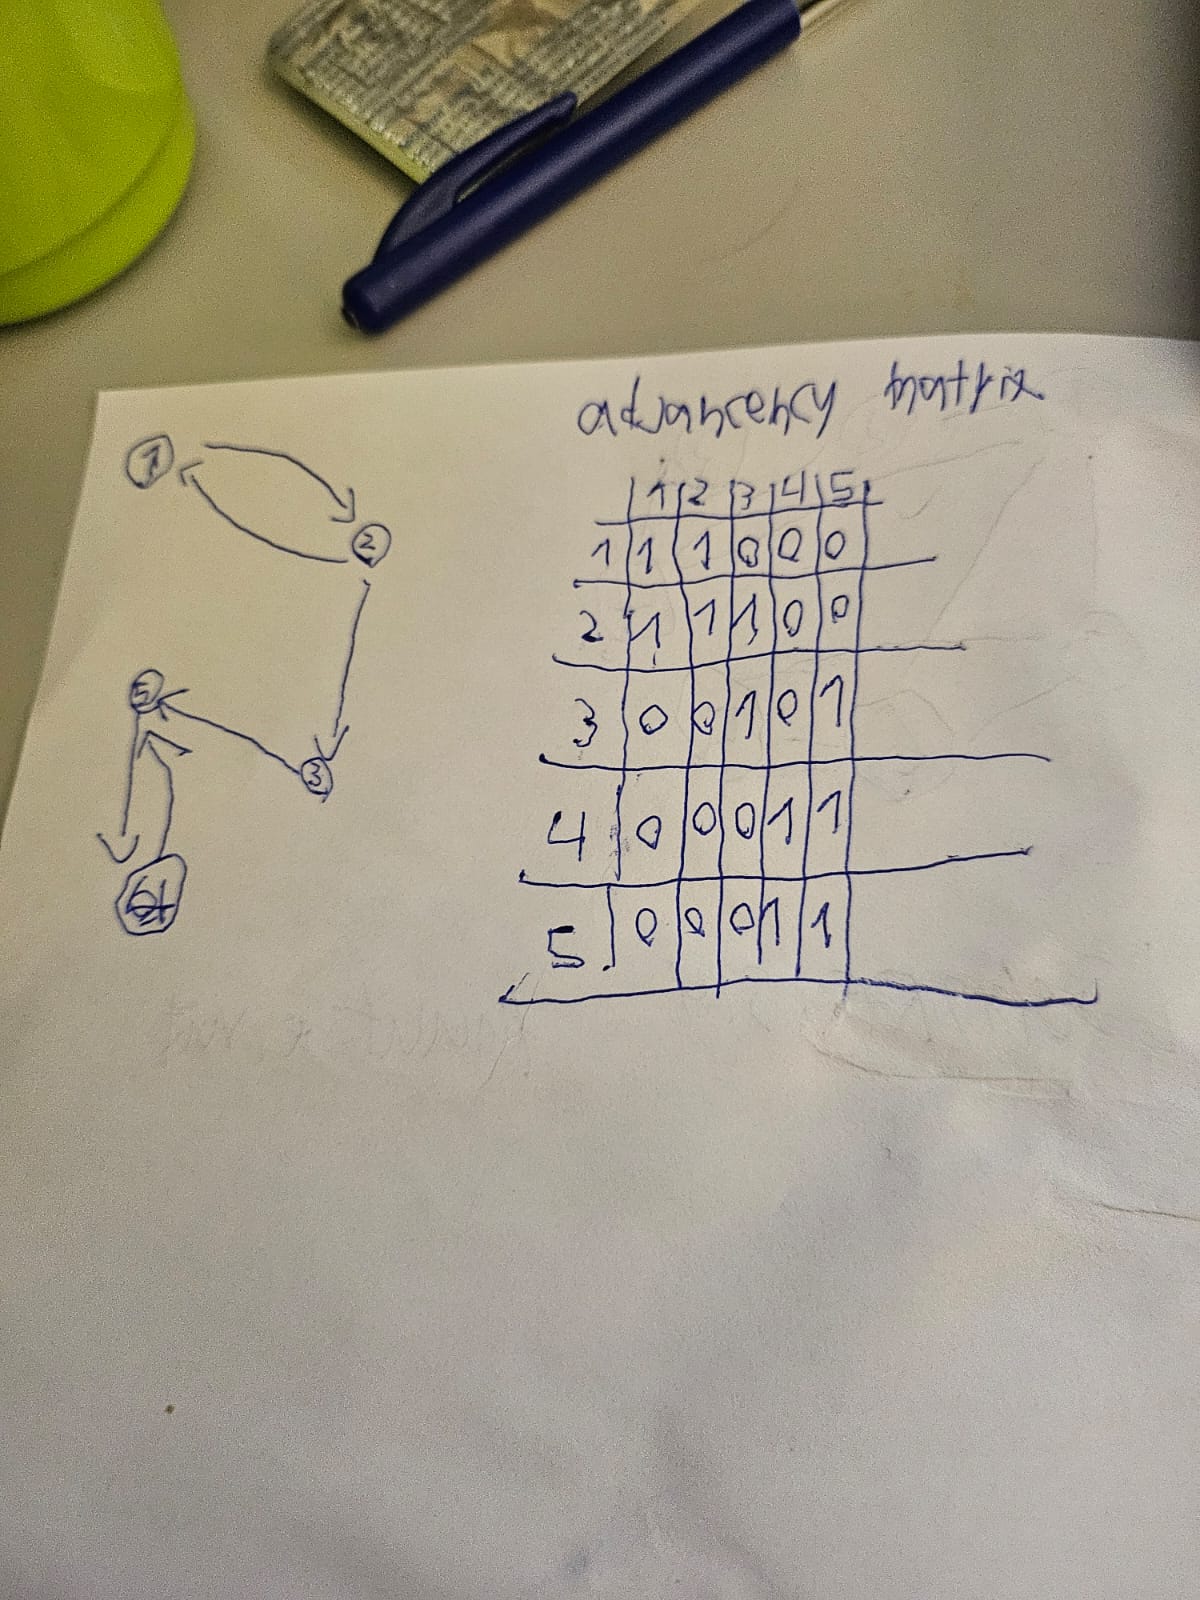 advancency matrix
1
2
5
3
1 2 3 4 5
1 1 1 0 0 0
2 1 1 1 0 0
3 0 0 1 0 1
4 0 0 0 1 1
5 0 0 0 1 1